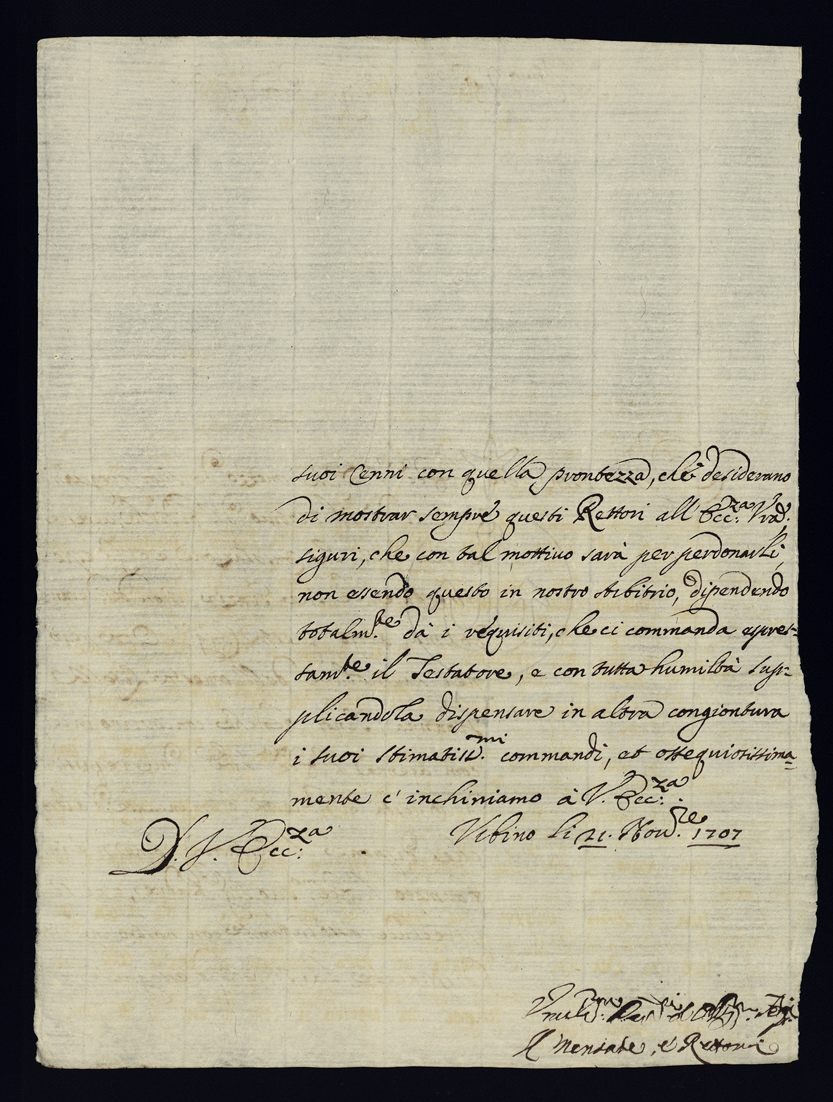 suoi Cenni con quella prontezza, che desiderano
di mostrar sempre questi Rettori all Ecc:za Vra.
siguri, che con tal mottivo sarà per perdonarli,
non esendo questo in nostro Arbitrio, dipendendo
totalm.te dà i requisiti, che ci commanda espres=
sam.te il Testatore, e con tutta humiltà sup=
plicandola dispensare in altra congiontura
i suoi stimatiss.mi commandi, et ossequiosissima=
mente c' inchiniamo à V. Ecc:za
Vrbino li 21. Nov.re 1707
D. V. Ecc:za
Il Mensate, e Rettori